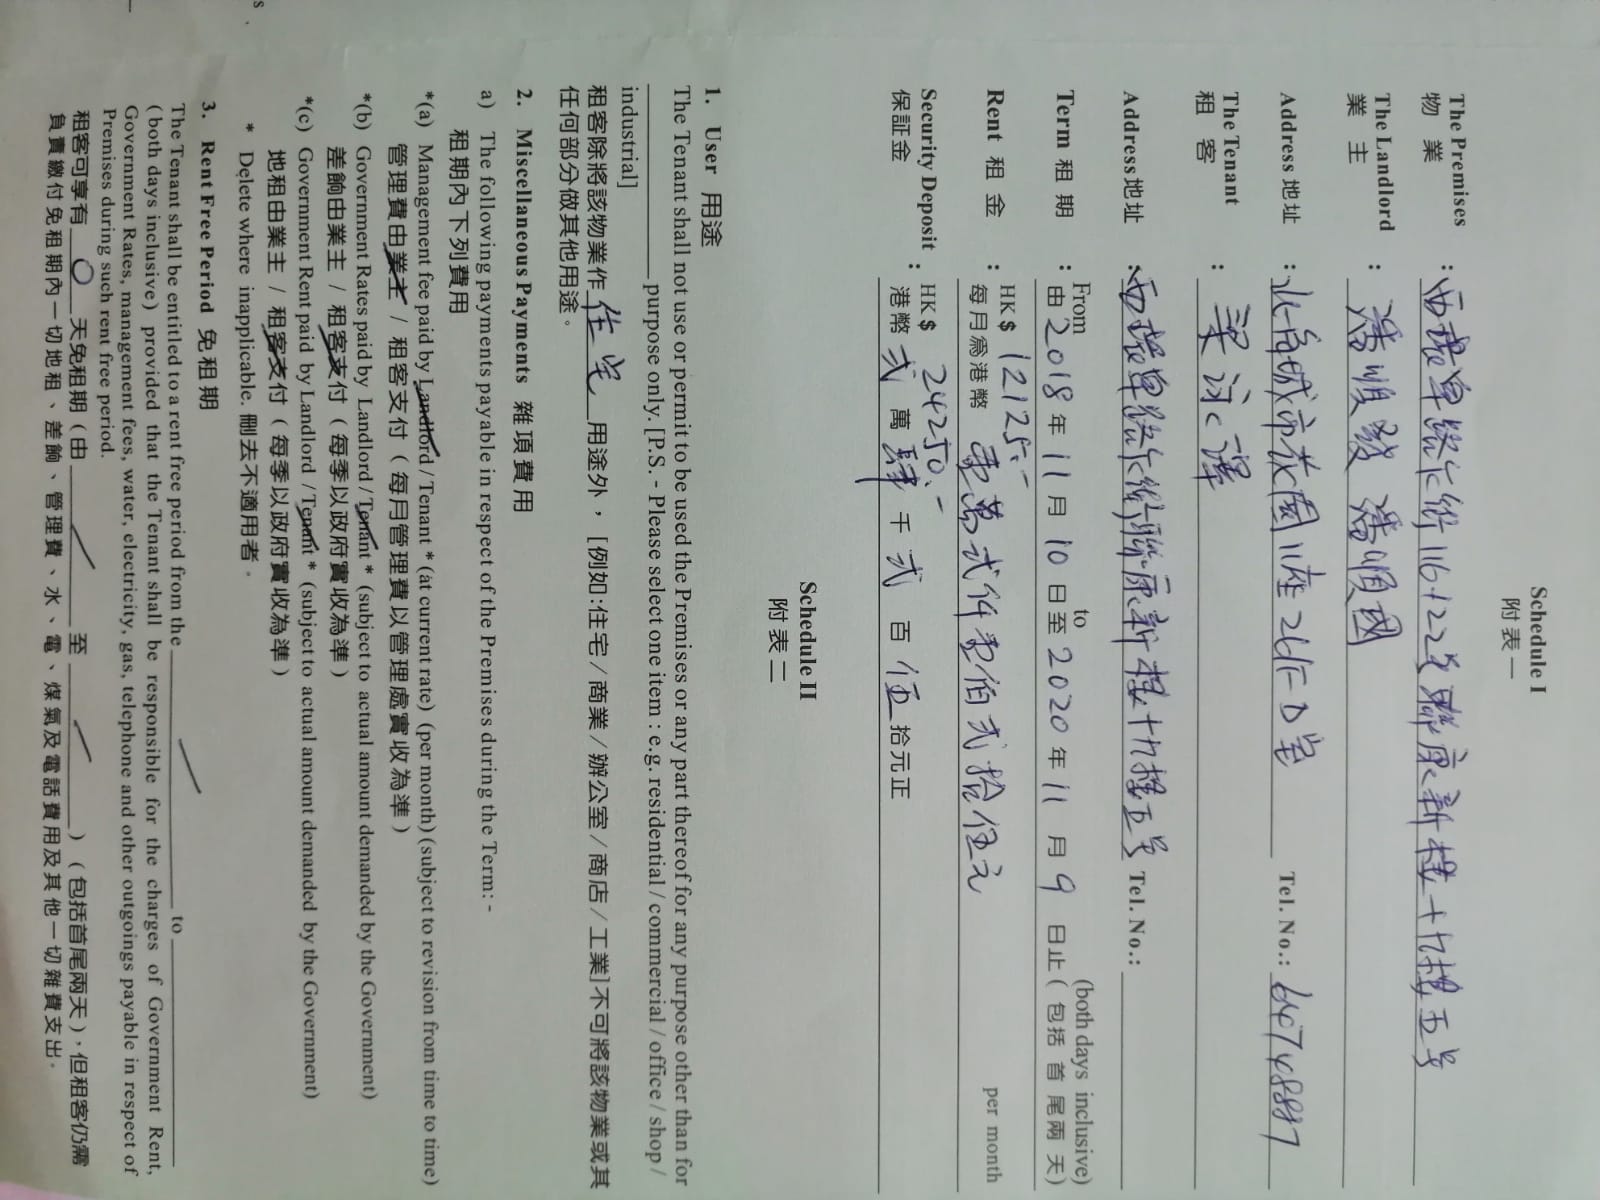 Schedule I
附表一
The Premises : 西環卑路乍街116-122號聯康新樓十九樓五號
物業
The Landlord : 潘順發 潘順國
業主
Address 地址 : 城市花園11座26/F D室 Tel. No.:
The Tenant : 梁
租客
Address 地址 : 西環卑路乍街聯康新樓十九樓五號 Tel. No.:
Term 租期 : From 由 2018 年 11 月 10 日 to 至 2020 年 11 月 9 日止 (both days inclusive) (包括首尾兩天)
Rent 租金 : HK$ 12125.- per month
每月為港幣 壹萬弍仟壹佰弍拾伍元
Security Deposit : HK$ 24250.-
保証金 港幣 弍 萬 肆 千 弍 百 伍 拾元正
Schedule II
附表二
1. User 用途
The Tenant shall not use or permit to be used the Premises or any part thereof for any purpose other than for
purpose only. [P.S. - Please select one item : e.g. residential / commercial / office / shop /
industrial]
租客除將該物業作 住宅 用途外，[例如:住宅/商業/辦公室/商店/工業]不可將該物業或其
任何部分做其他用途。
2. Miscellaneous Payments 雜項費用
a) The following payments payable in respect of the Premises during the Term: -
租期內下列費用
*(a) Management fee paid by Landlord / Tenant * (at current rate) (per month) (subject to revision from time to time)
管理費由業主 / 租客支付 (每月管理費以管理處實收為準)
*(b) Government Rates paid by Landlord / Tenant * (subject to actual amount demanded by the Government)
差餉由業主 / 租客支付 (每季以政府實收為準)
*(c) Government Rent paid by Landlord / Tenant * (subject to actual amount demanded by the Government)
地租由業主 / 租客支付 (每季以政府實收為準)
* Delete where inapplicable. 刪去不適用者。
3. Rent Free Period 免租期
The Tenant shall be entitled to a rent free period from the to
(both days inclusive) provided that the Tenant shall be responsible for the charges of Government Rent,
Government Rates, management fees, water, electricity, gas, telephone and other outgoings payable in respect of
Premises during such rent free period.
租客可享有 0 天免租期 (由 至 ) (包括首尾兩天)，但租客仍需
負責繳付免租期內一切地租、差餉、管理費、水、電、煤氣及電話費用及其他一切雜費支出.